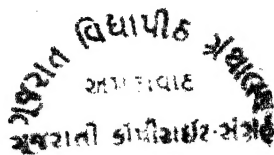 ગૂજરાત વિદ્યાપીઠ ગ્રંથાલય
અમદાવાદ
ગુજરાતી કૉપીરાઈટ-સંગ્રહ